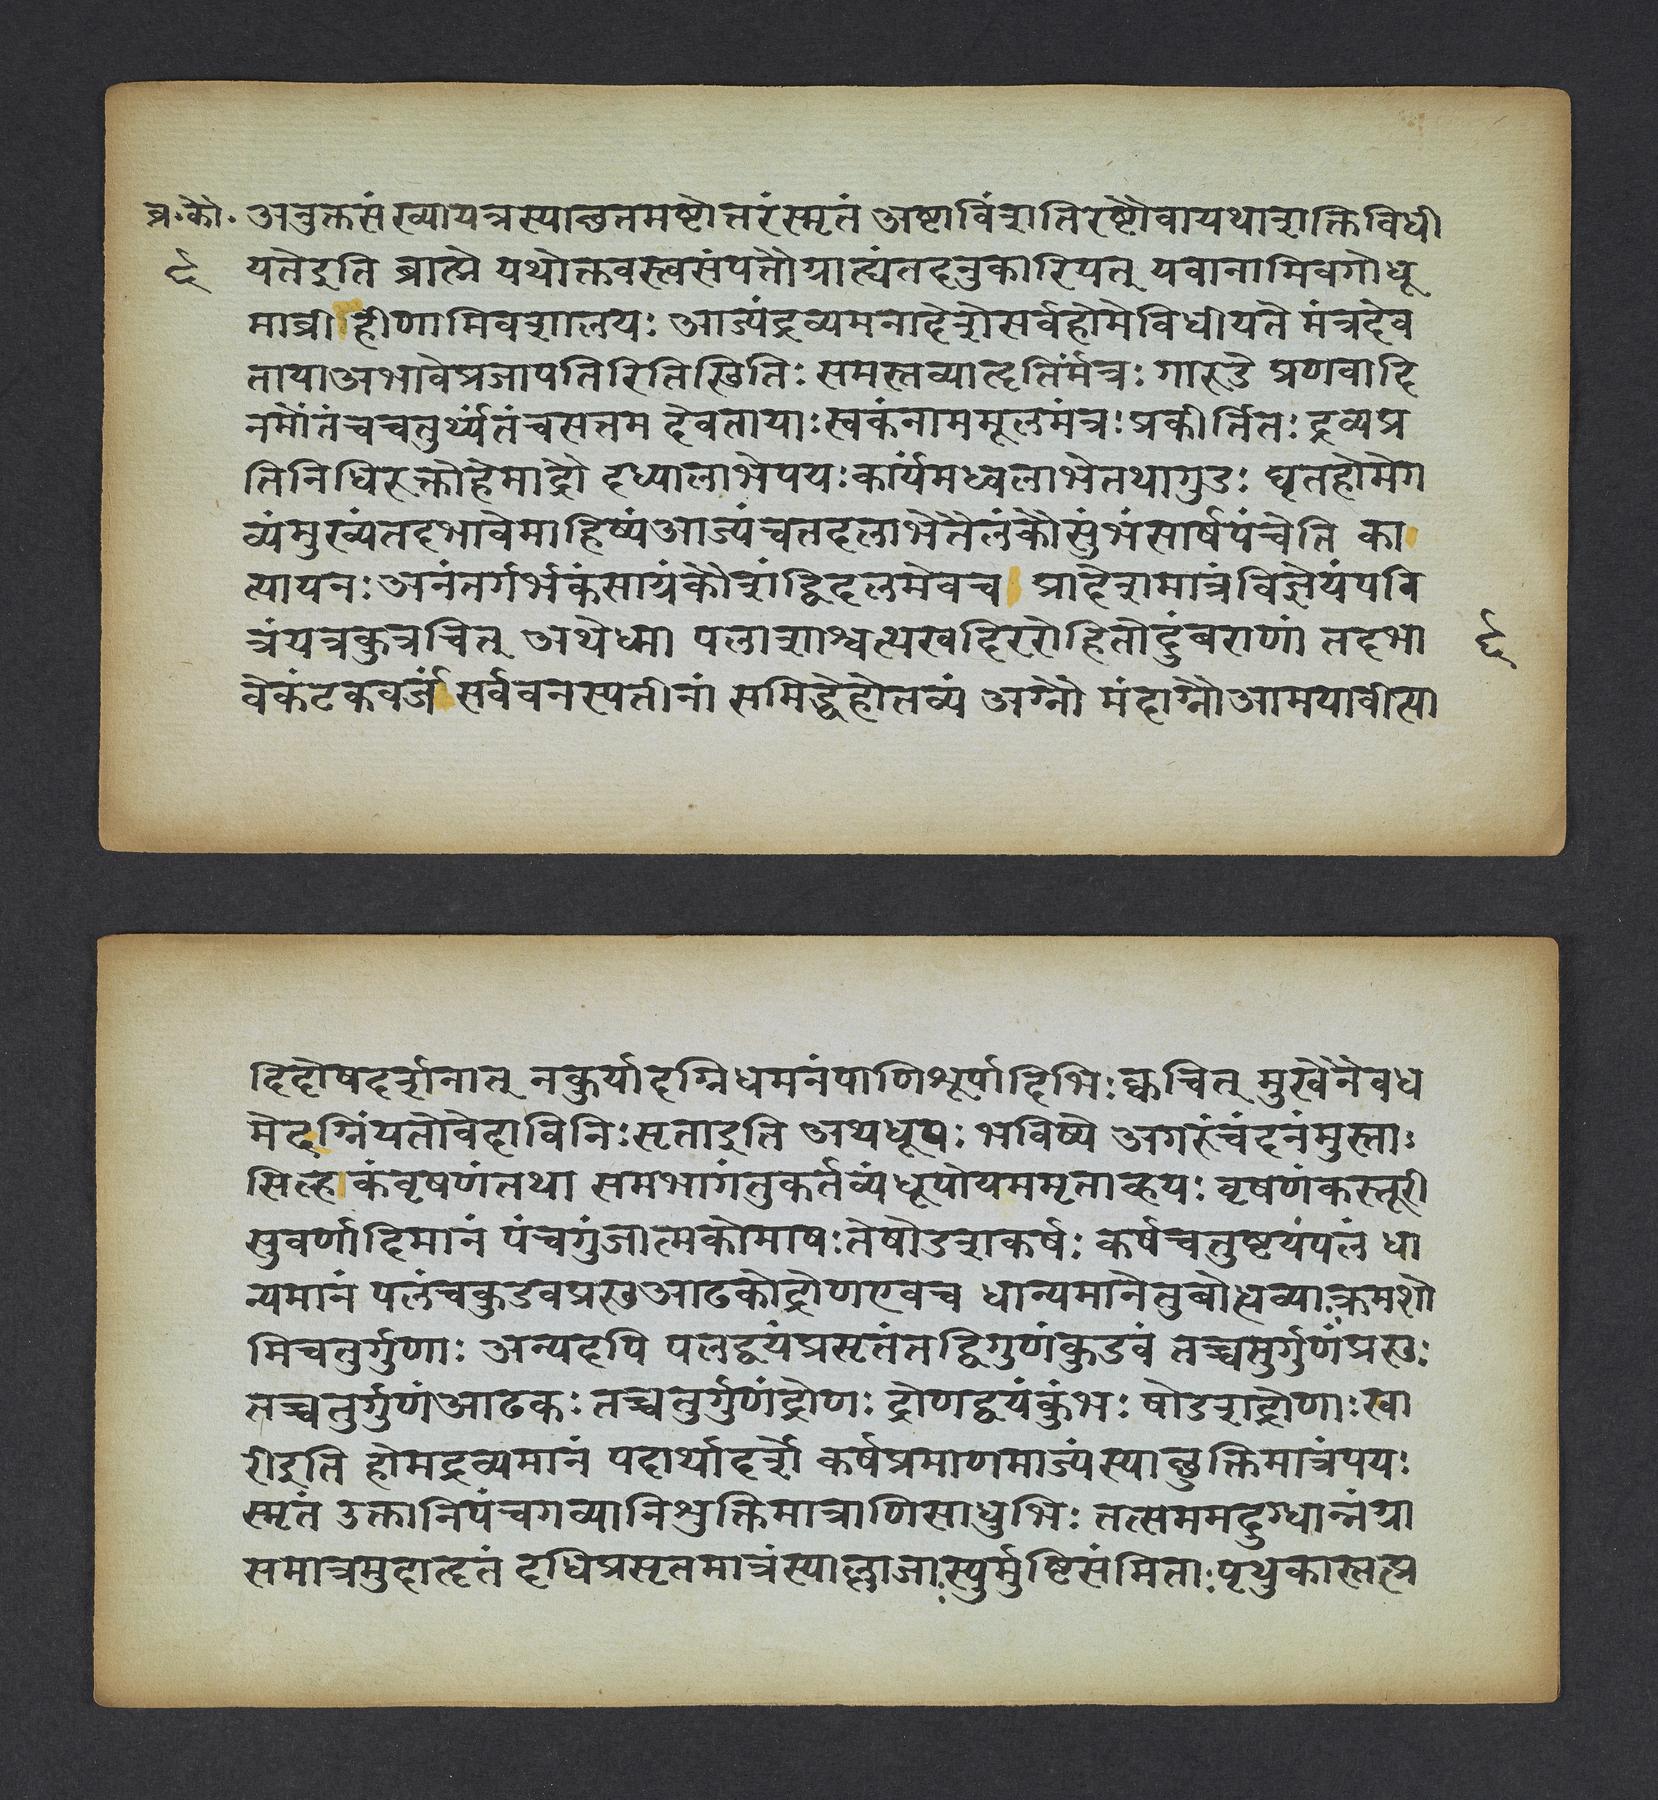 व्र.कौ. अनुक्तसंख्यायत्रस्याच्छतमष्टोत्तरंस्मृतं अष्टाविंशतिरष्टौवायथाशक्तिविधी
९ यतेइति ब्राह्मे यथोक्तवस्त्वसंपत्तौग्राह्यंतदनुकारियत् यवानामिवगोधू
माव्रीहीणामिवशालयः आज्यंद्रव्यमनादेशेसर्वहोमेविधीयते मंत्रदेव
तायाअभावेप्रजापतिरितिस्थितिः समस्तव्याहृतिर्मंत्रः गारुडे प्रणवादि
नमोंतंचचतुर्थ्यंतंचसत्तम देवतायाःस्वकंनाममूलमंत्रःप्रकीर्तितः द्रव्यप्र
तिनिधिरुक्तोहेमाद्रौ दध्यालाभेपयःकार्यंमध्वलाभेतथागुडः घृतहोमेग
व्यंमुख्यंतदभावेमाहिष्यंआज्यंचतदलाभेतैलंकौसुंभंसार्षपंचेति का
त्यायनः अनंतर्गर्भकंसाग्रंकौशंद्विदलमेवच प्रादेशमात्रंविज्ञेयंपवि
त्रंयत्रकुत्रचित् अथेध्मा पलाशाश्वत्थखदिररोहितोदुंबराणां तदभा
९
वेकंटकवर्जंसर्ववनस्पतीनां समिद्धेहोतव्यं अग्नौ मंदाग्नौआमयावीत्या
दिदोषदर्शनात् नकुर्यादग्निधमनंपाणिशूर्पादिभिःक्वचित् मुखेनैवध
मेदग्निंयतोवेदाविनिःसृताइति अथधूपः भविष्ये अगरुंचंदनंमुस्ताः
सिल्हकंवृषणंतथा समभागंतुकर्तव्यंधूपोयममृताव्हयः वृषणंकस्तूरी
सुवर्णादिमानं पंचगुंजात्मकोमाषःतेषोडशकर्षः कर्षचतुष्टयंपलं धा
न्यमानं पलंचकुडवप्रस्थआढकोद्रोणएवच धान्यमानेतुबोद्धव्याःक्रमशो
मिचतुर्गुणाः अन्यदपि पलद्वयंप्रसृतंतद्विगुणंकुडवं तच्चसुर्गुणंप्रस्थः
तच्चतुर्गुणंआढकः तच्चतुर्गुणंद्रोणः द्रोणद्वयंकुंभः षोडशद्रोणाःखा
रीइति होमद्रव्यमानं पदार्थादर्शे कर्षप्रमाणमाज्यंस्याच्छुक्तिमात्रंपयः
स्मृतं उक्तानिपंचगव्यानिशुक्तिमात्राणिसाधुभिः तत्सममद्दुग्धान्नंग्रा
समात्रमुदाहृतं दधिप्रसृतमात्रंस्याल्लाजाःस्युर्मुष्टिसंमिताःपृथुकास्तत्प्र